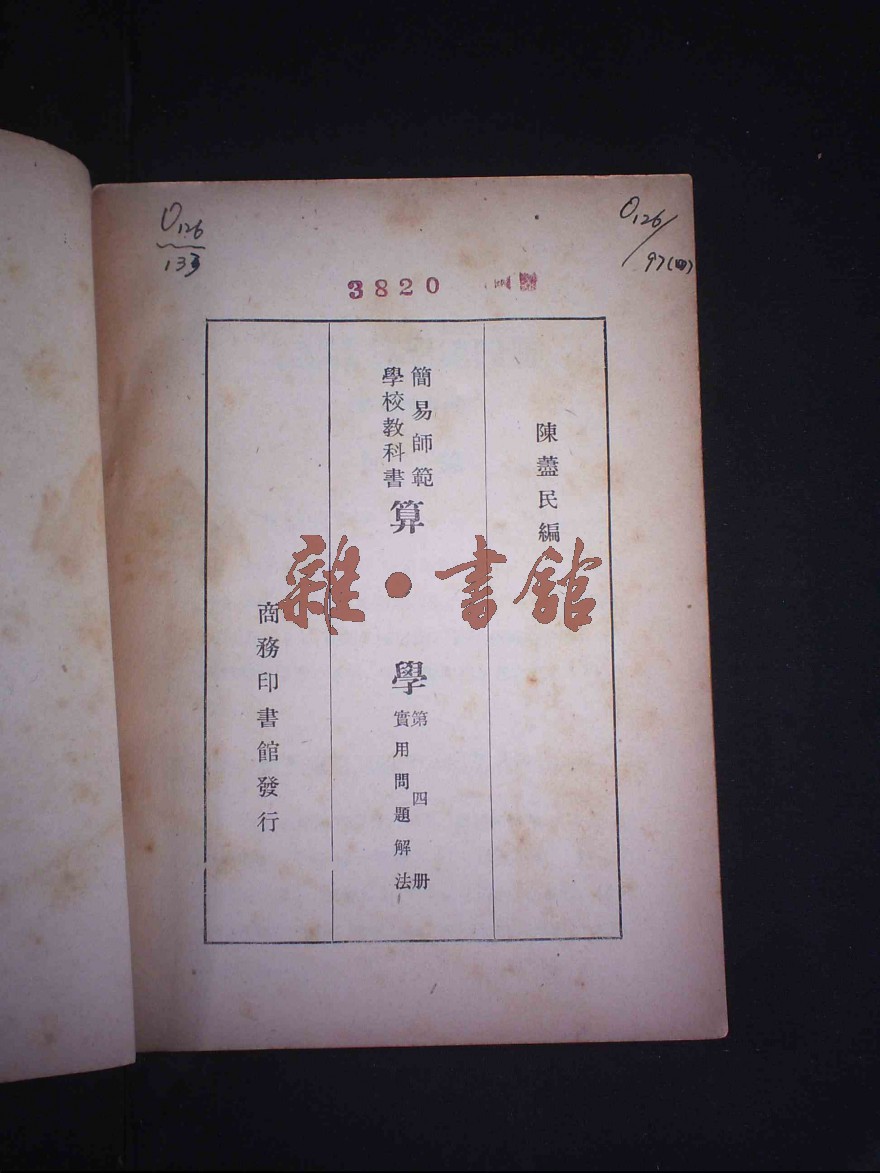 O126
133
O126/97(四)
3820
陳藎民編
簡易師範
學校教科書
算學
第四册
實用問題解法
商務印書館發行
雜·書館